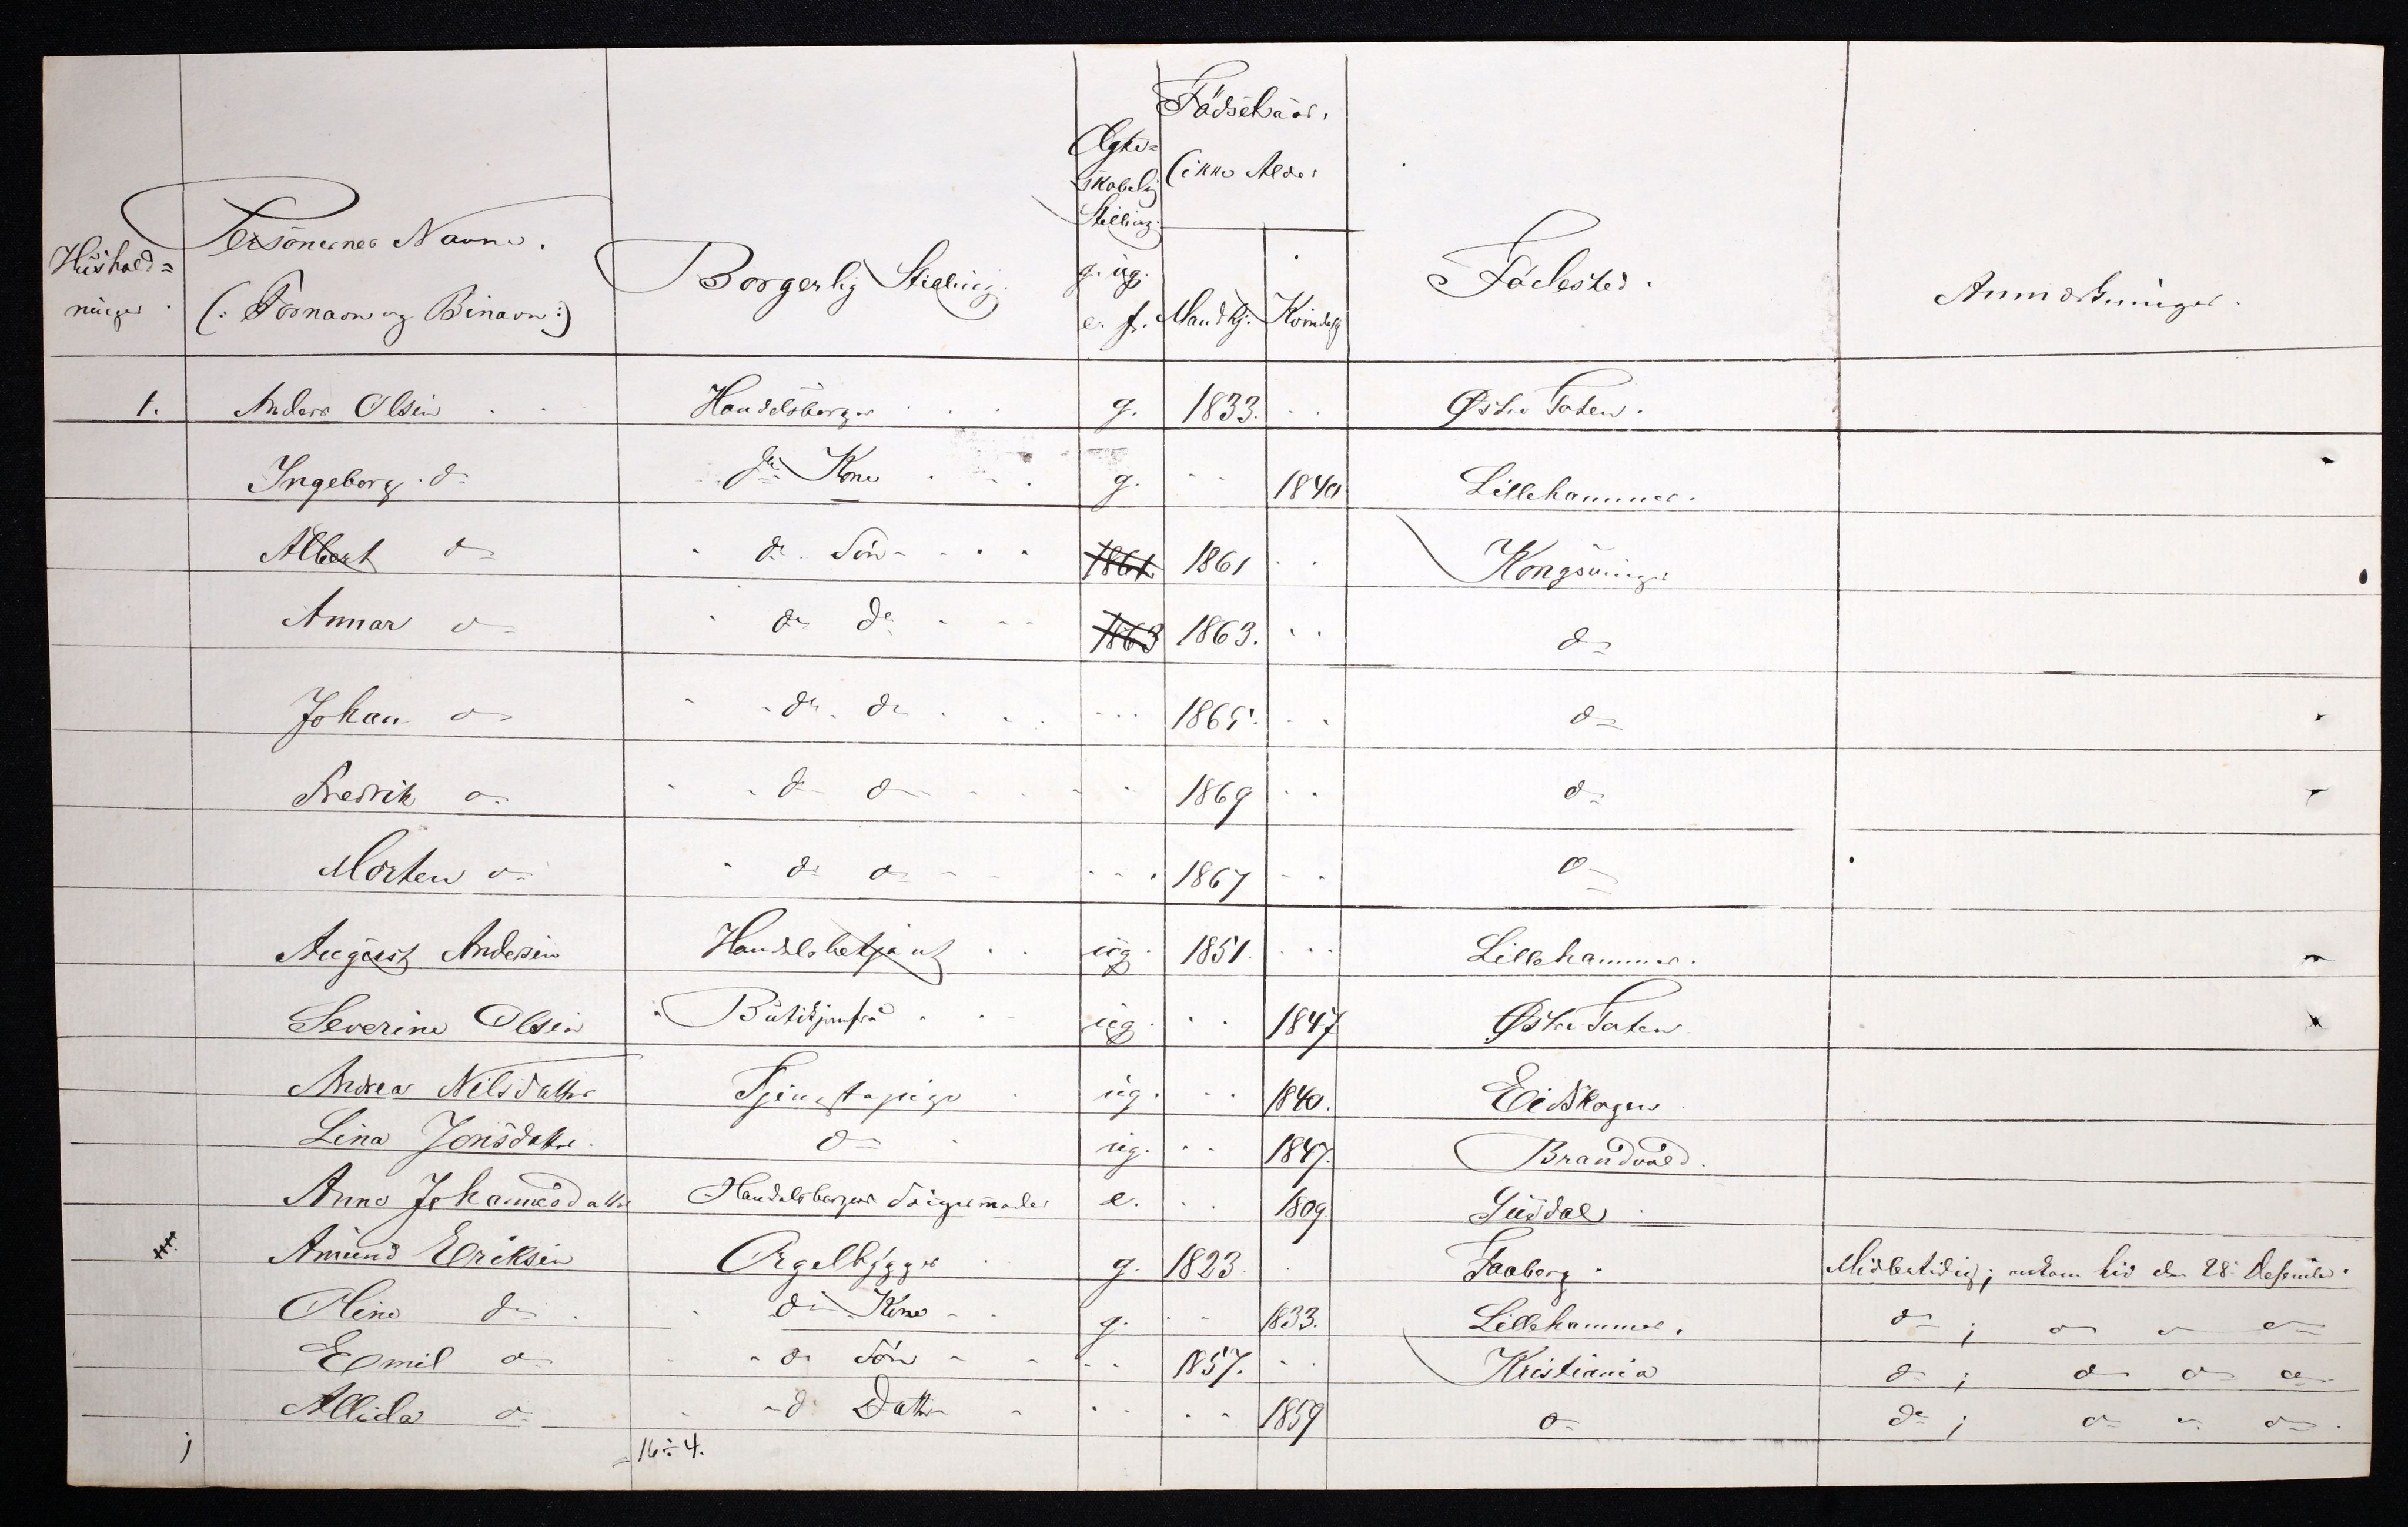 Husholdninger. Personernes Navne. (: Fornavn og Binavn :) Borgerlig Stilling. Ægteskabelig Stilling. g. ug. e. f. Fødselsaar. (ikke Alder Mandkj. Kvindekj Fødested. Anmærkninger.
1. Anders Olsen Handelsborger g. 1833. Østre Toten.
Ingeborg do do Kone g. 1840 Lillehammer.
Albert do do Søn 1861 1861 Kongsvinger
Annar do do do 1863 1863. do
Johan do do do 1865. do
Fredrik do do do 1869 do
Morten do do do 1867 do
August Andersen Handelsbetjent ug. 1851. Lillehammer.
Severine Olsen Butikjomfru ug. 1847 Østre Toten
Andrea Nilsdatter Tjenestepige ug. 1840. Eidskogen
Lina Jonsdatter do ug. 1847. Brandvold.
Anne Johannesdatter Handelsborgers Svigermoder e. 1809
Amund Eriksen Orgelbygger g. 1823. Faaberg. Midlertidig; ankom hid den 28. Desember.
Oline do do Kone g. 1833. Lillehammer. do ; do do do
Emil do do Søn 1857. Kristiania do ; do do do
Allida do do Datter 1859 do do ; do do do
16÷4.